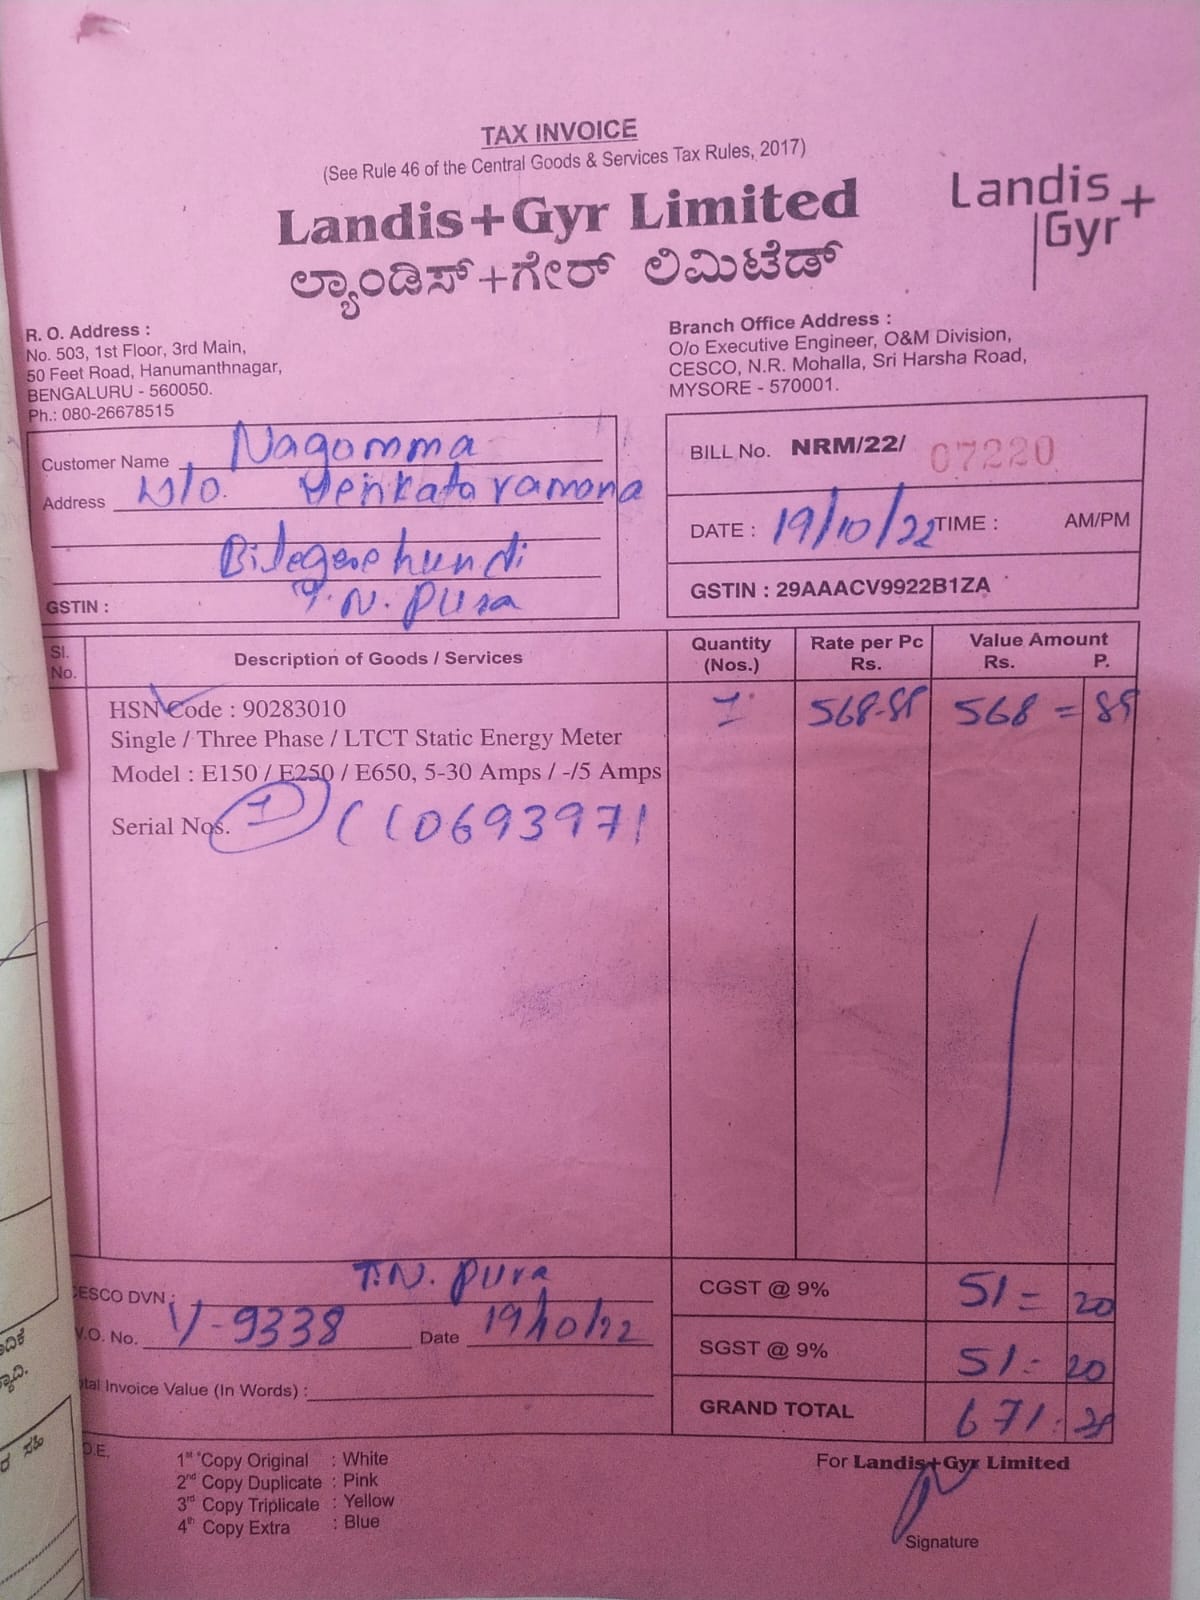 TAX INVOICE
(See Rule 46 of the Central Goods & Services Tax Rules, 2017)
Landis+Gyr Limited
ಲ್ಯಾಂಡಿಸ್+ಗೇರ್ ಲಿಮಿಟೆಡ್
Landis+
Gyr
R. O. Address :
No. 503, 1st Floor, 3rd Main,
50 Feet Road, Hanumanthnagar,
BENGALURU - 560050.
Ph.: 080-26678515
Branch Office Address :
O/o Executive Engineer, O&M Division,
CESCO, N.R. Mohalla, Sri Harsha Road,
MYSORE - 570001.
Customer Name Nagomma
Address W/o. Venkataramona
T.N. Pura
GSTIN :
BILL No. NRM/22/ 07220
DATE : 19/10/22 TIME : AM/PM
GSTIN : 29AAACV9922B1ZA
Sl. No. Description of Goods / Services Quantity (Nos.) Rate per Pc Rs. Value Amount Rs. P.
HSN Code : 90283010 1 568-89 568 = 89
Single / Three Phase / LTCT Static Energy Meter
Model : E150 / E250 / E650, 5-30 Amps / -/5 Amps
Serial Nos. 1
CESCO DVN : T.N. Pura
W.O. No. V-9338 Date 19/10/22
Total Invoice Value (In Words) :
CGST @ 9% 51 = 20
SGST @ 9% 51 - 20
GRAND TOTAL 671
1st Copy Original : White
2nd Copy Duplicate : Pink
3rd Copy Triplicate : Yellow
4th Copy Extra : Blue
For Landis+Gyr Limited
Signature